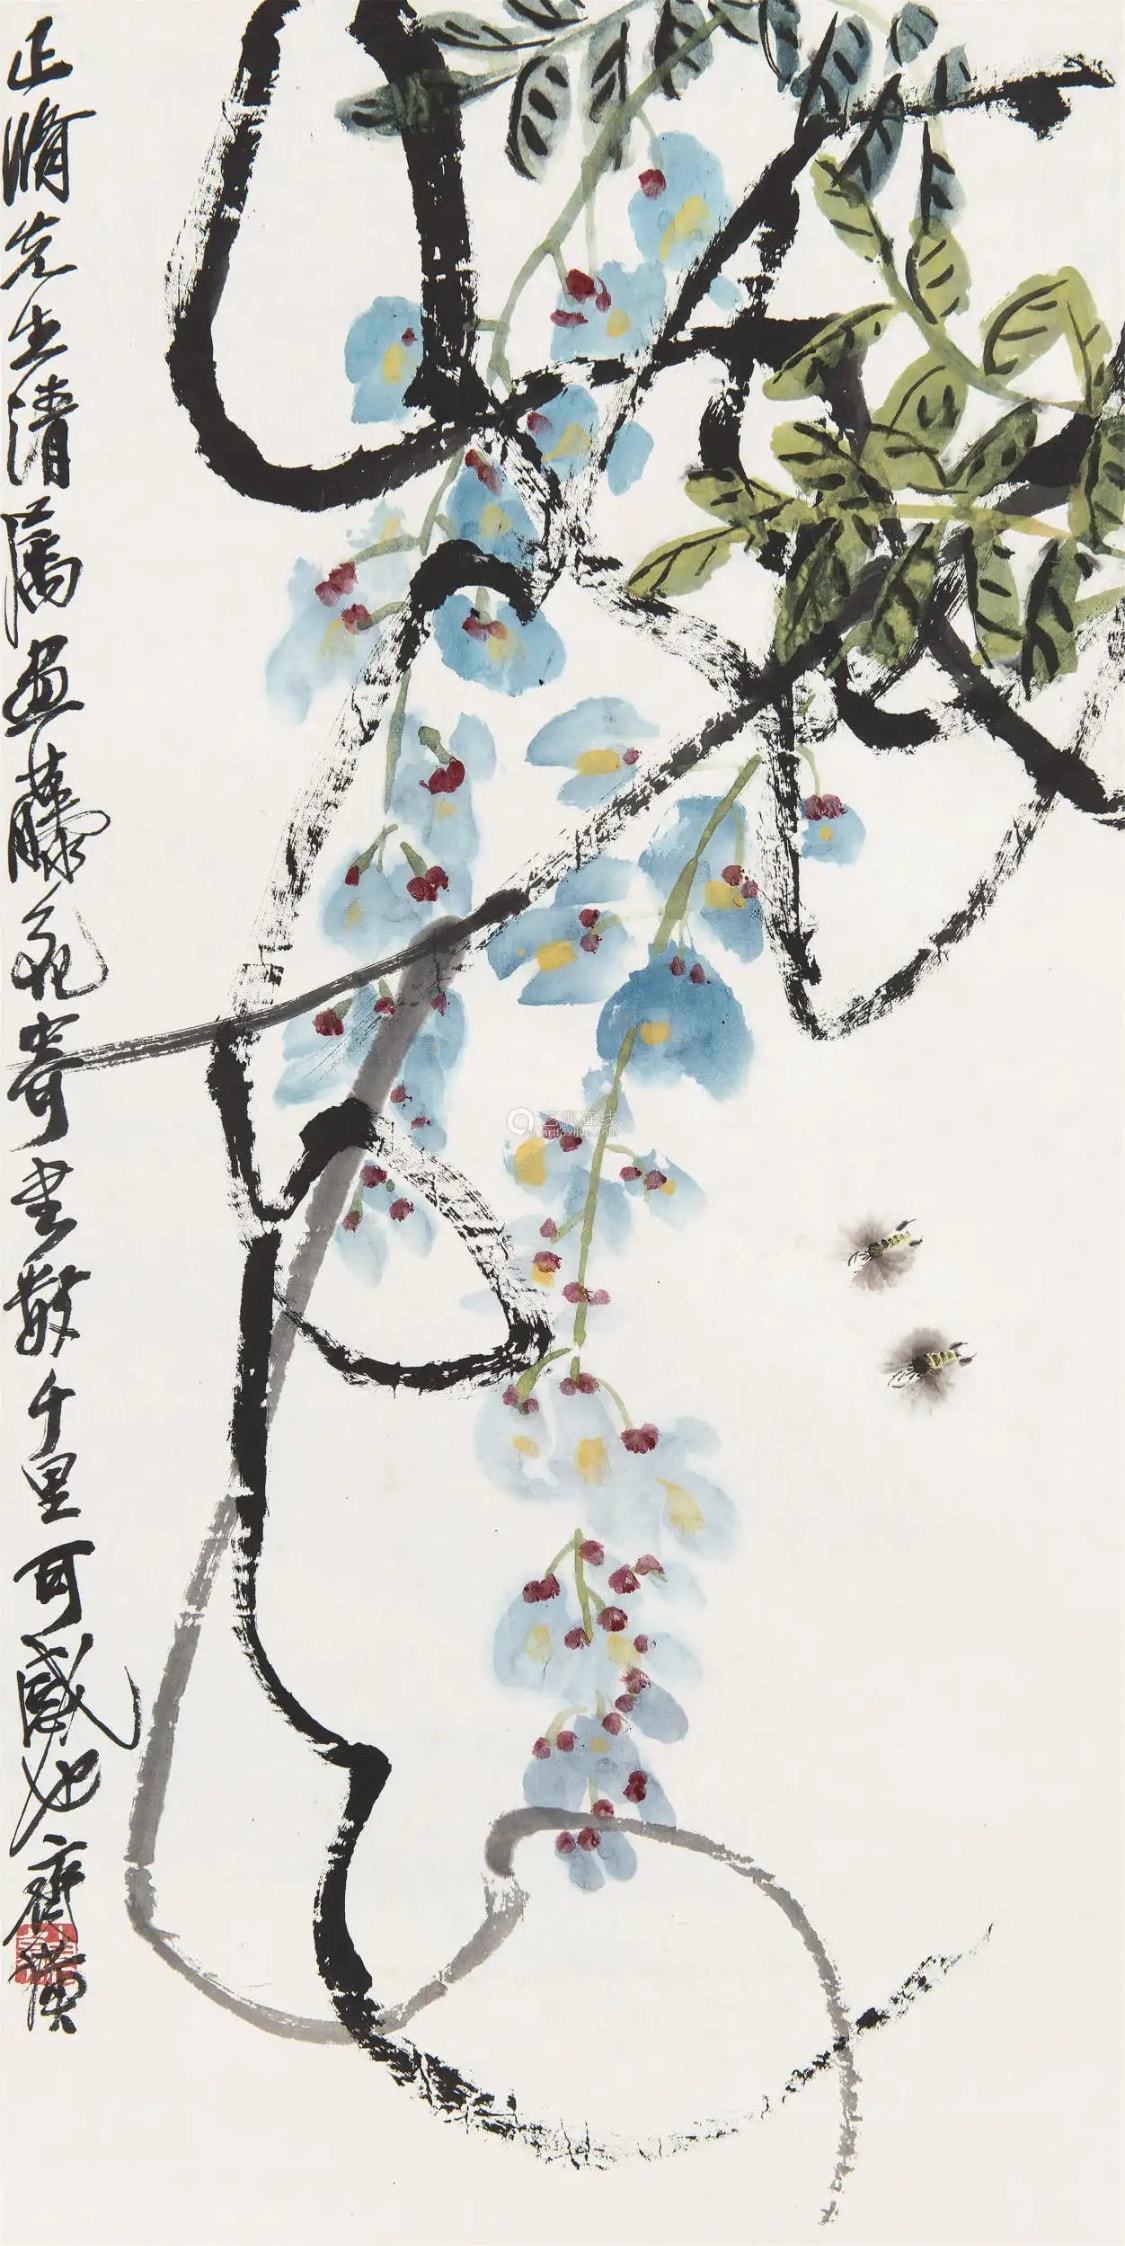 正脩先生清属画藤花寄书数千里可感也齐璜